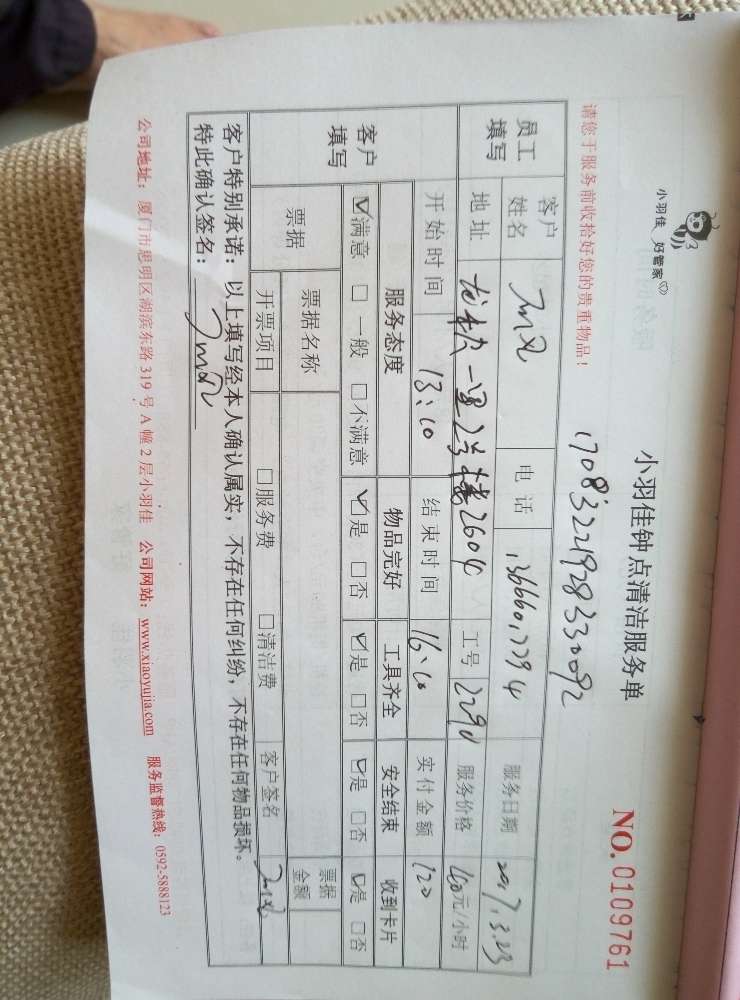 小羽佳 好管家
小羽佳钟点清洁服务单
NO.0109761
请您于服务前收拾好您的贵重物品！
17083221928330092
员工填写 客户姓名 电话 13666017794 服务日期 2017.3.23
地址 一里2号楼2604 工号 2290 服务价格 元/小时
客户填写 开始时间 13:10 结束时间 16:10 实付金额 120
服务态度 物品完好 工具齐全 安全结束 收到卡片
☑满意 □一般 □不满意 ☑是 □否 ☑是 □否 ☑是 □否 ☑是 □否
票据 票据名称 票据金额
开票项目 □服务费 □清洁费 客户签名
客户特别承诺：以上填写经本人确认属实，不存在任何纠纷，不存在任何物品损坏。
特此确认签名：
公司地址：厦门市思明区湖滨东路319号A幢2层小羽佳 公司网站：www.xiaoyujia.com 服务监督热线：0592-5888123